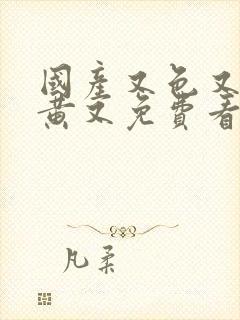 國產又色又
黃又免費看
凡柔